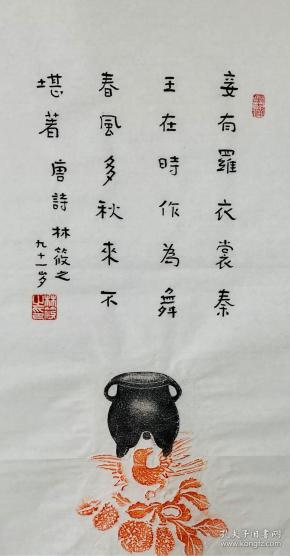 妾有羅衣裳秦
王在時作為舞
春風多秋來不
堪著 唐詩 林筱之
九十一岁
林筱之印
孔夫子旧书网